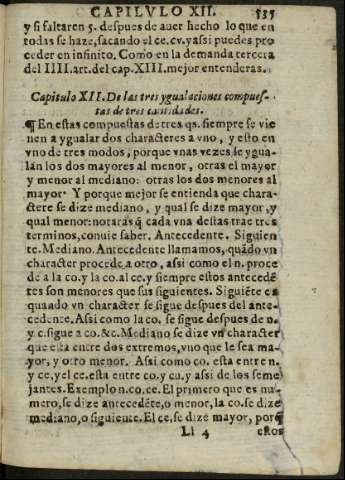 CAPILVLO XII. 535
y si faltaren 5. despues de auer hecho lo que en
todas se haze, sacando el ce. cv. y assi puedes pro
ceder en infinito. Como en la demanda tercera
del IIII. art. del cap. XIII. mejor entenderas.
Capitulo XII. De las tres ygualaciones compues-
tas de tres cantidades.
¶ En estas compuestas de tres qs. siempre se vie
nen a ygualar dos characteres a vno, y esto en
vno de tres modos, porque vnas vezes se ygua
lan los dos mayores al menor, otras el mayor
y menor al mediano: otras los dos menores al
mayor Y porque mejor se entienda que chara-
ctere se dize mediano, y qual se dize mayor, y
qual menor: notarás q̃ cada vna destas trae tres
terminos, conuie saber. Antecedente. Siguien
te. Mediano. Antecedente llamamos, quãdo vn
character procede a otro, assi como el n. proce
de a la co. y la co. al ce. y siempre estos antecedẽ
tes son menores que sus siguientes. Siguiẽte es
quando vn character se sigue despues del ante-
cedente. Assi como la co. se sigue despues de n.
y c. sigue a co. &c. Mediano se dize vn character
que esta entre dos extremos, vno que le sea ma
yor, y otro menor. Assi como co. esta entre n.
y ce. y el ce. esta entre co. y cu. y assi de los seme
jantes. Exemplo n. co. ce. El primero que es nu-
mero, se dize antecedẽte, o menor, la co. se dize
mediano, o siguiente. El ce. se dize mayor, porq̃
Ll 4 estos